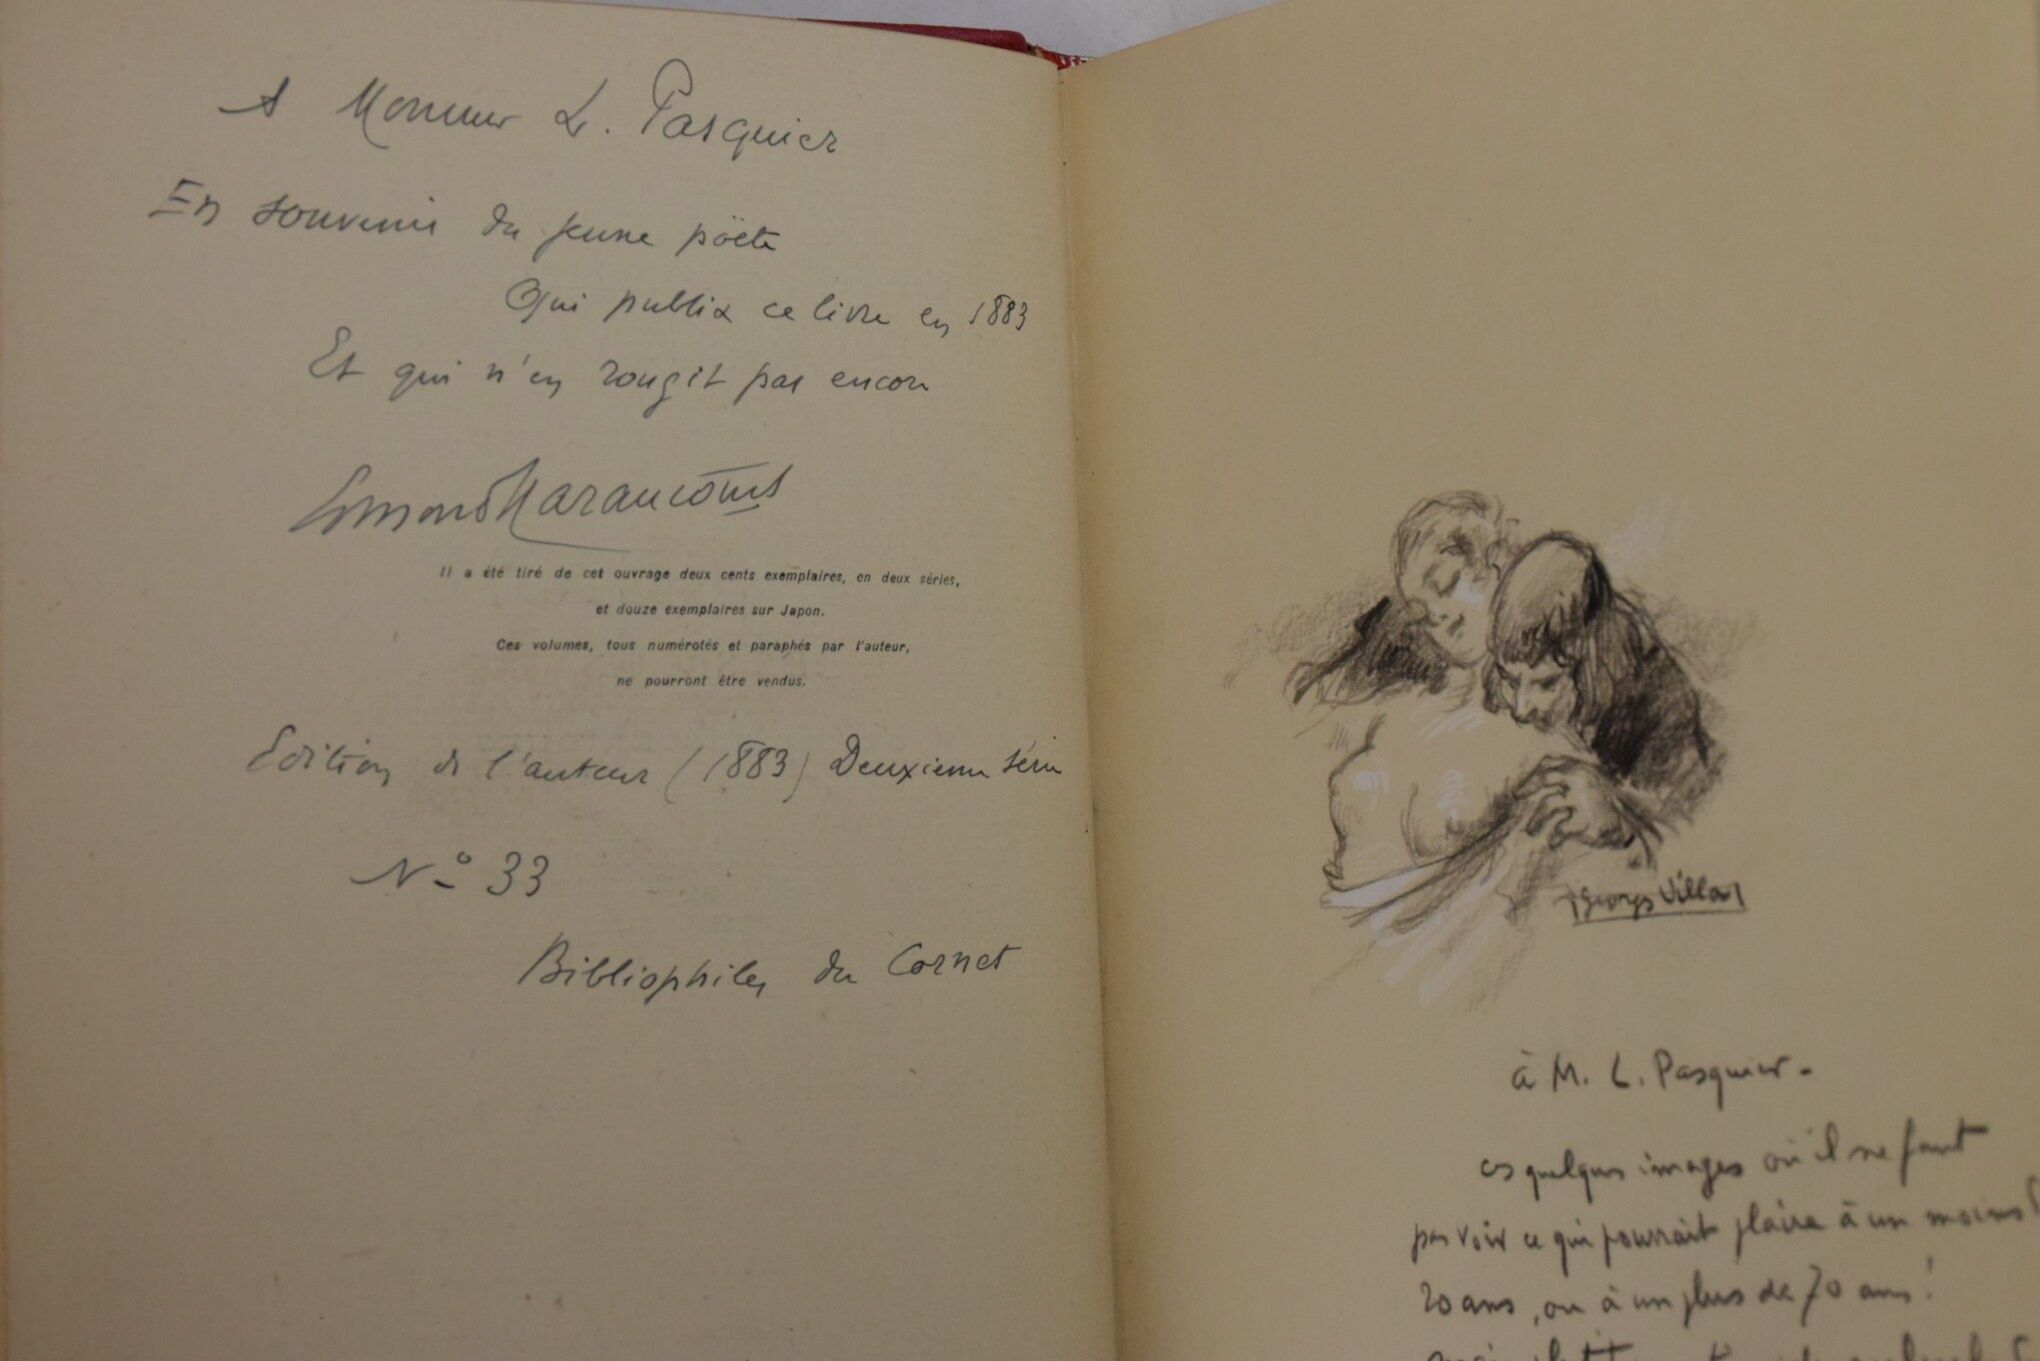 A Monsieur L. Pasquier
En souvenir du jeune pöete
Qui publia ce livre en 1883
Et qui n'en rougit pas encore
Edmond Haraucourt
Il a été tiré de cet ouvrage deux cents exemplaires, en deux séries,
et douze exemplaires sur Japon.
Ces volumes, tous numérotés et paraphés par l'auteur,
ne pourront être vendus.
Edition de l'auteur (1883) Deuxième série
N° 33
Bibliophiles du Cornet
Georges Villa
à M. L. Pasquier -
ces quelques images où il ne faut
pas voir ce qui pourrait plaire à un moins
20 ans, ou à un plus de 70 ans!